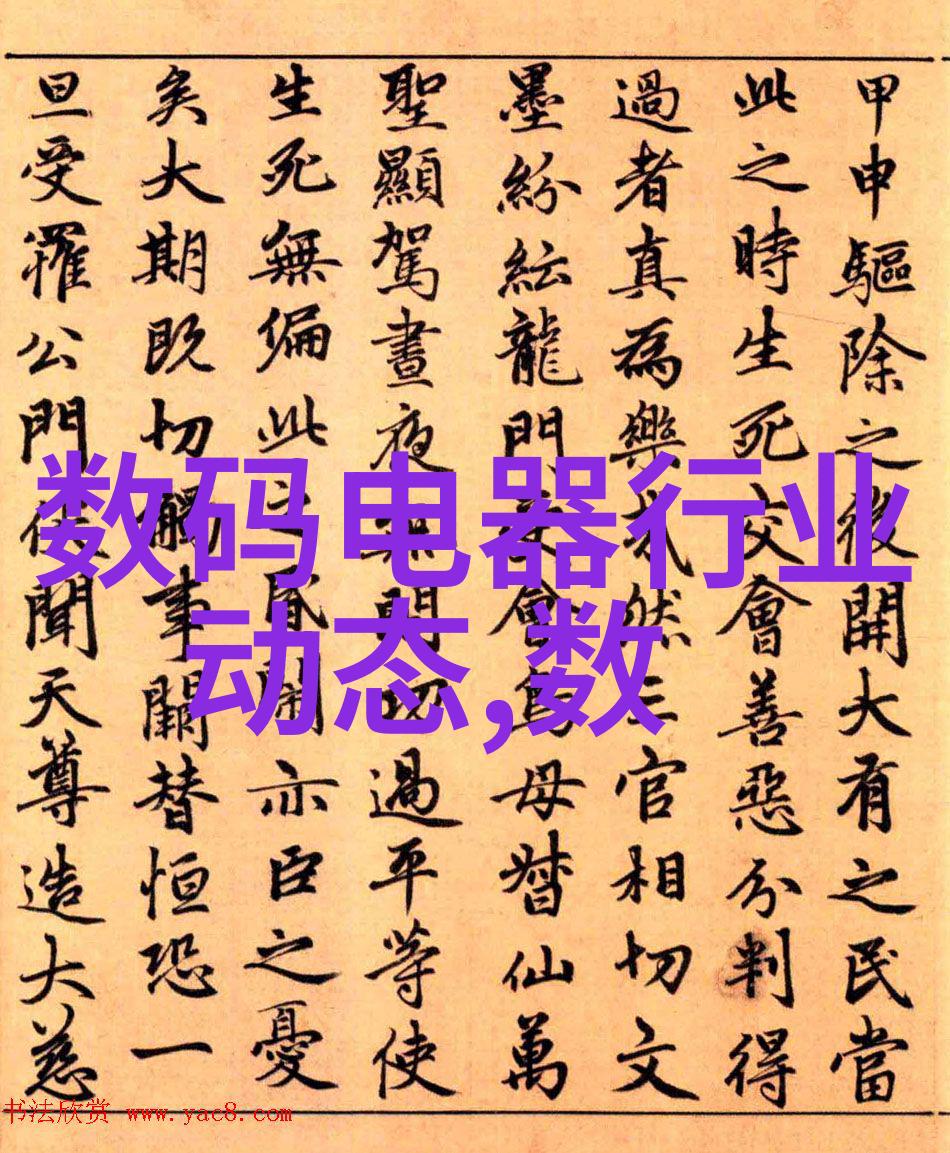 甲申驅除之後開大有之民當
此之時生死交會善惡分判得
過者真為樂哉然三官相切文
墨紛紜龍門會母督仙萬
聖顯駕晝夜無切過平等使
生死無偏此亦臣之憂
矣大期既切觸事替恒恐一
旦受罹公門聞天尊造大慈
数码电器行业
动态,数
书法欣赏 www.yac8.com